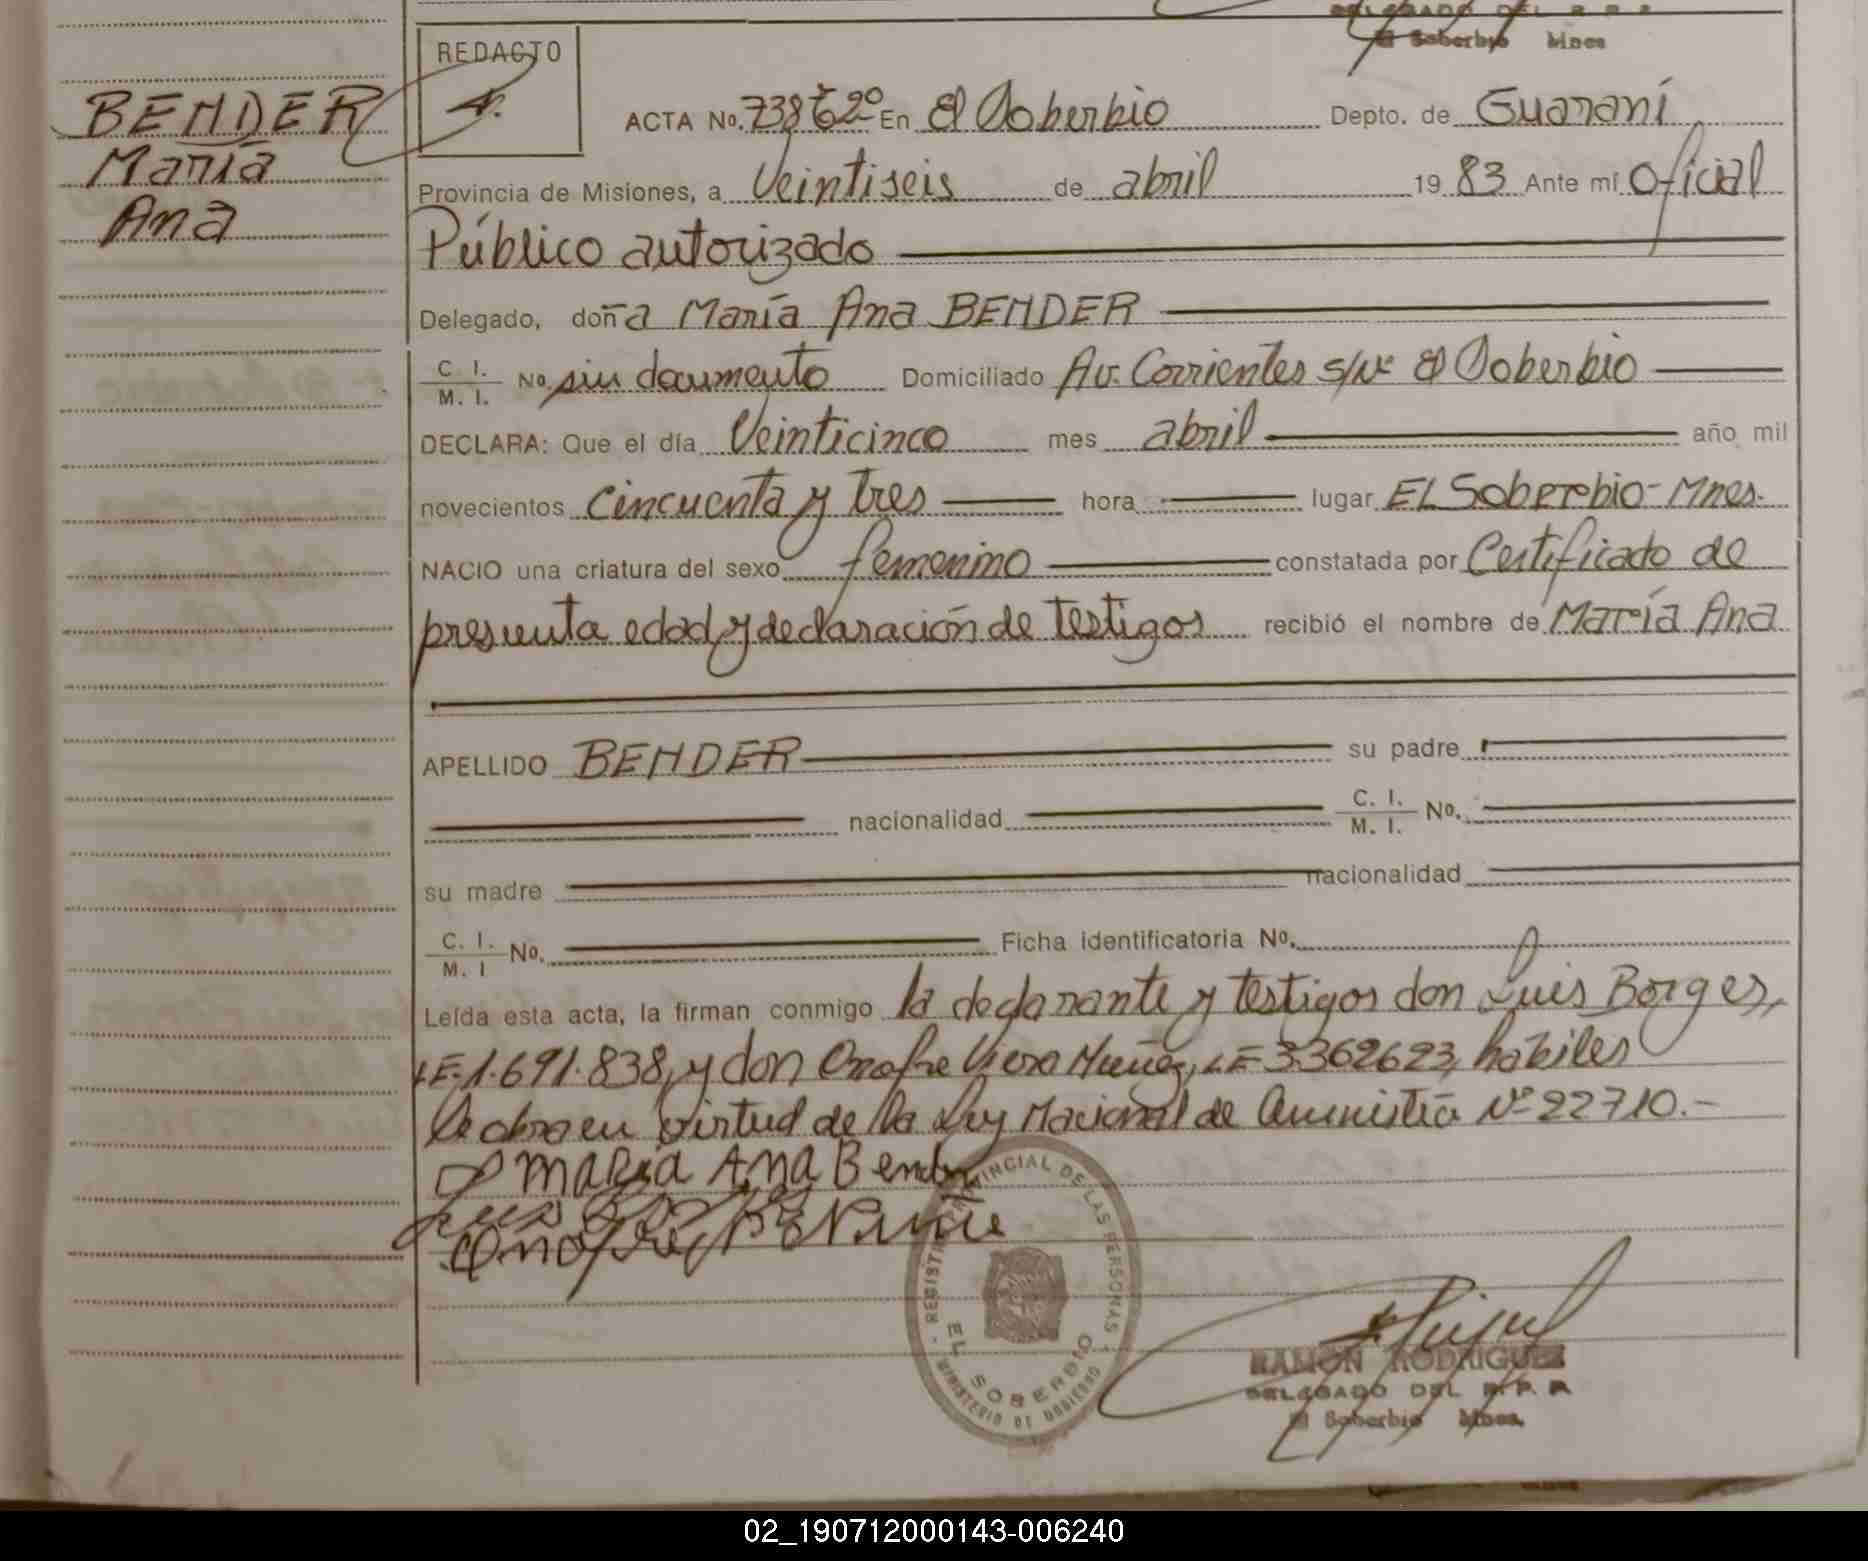 DELEGADO DEL R. P. P.
El Soberbio Mnes
REDACTO
BENDER
María
Ana
ACTA No. 738 Tº 2º En El Soberbio Depto. de Guaraní
Provincia de Misiones, a Veintiseis de abril 19 83 Ante mí Oficial
Público autorizado
Delegado, doña María Ana BENDER
C. I.
M. I. No. sin documento Domiciliado Av. Corrientes s/Nº El Soberbio
DECLARA: Que el día Veinticinco mes abril año mil
novecientos cincuenta y tres hora lugar EL Soberbio - Mnes.
NACIO una criatura del sexo femenino constatada por Certificado de
presunta edad y declaración de testigos recibió el nombre de María Ana
APELLIDO BENDER su padre
nacionalidad C. I.
M. I. No.
su madre nacionalidad
C. I.
M. I No. Ficha identificatoria No.
Leída esta acta, la firman conmigo la declarante y testigos don Luis Borges,
LE. 1.691.838, y don Onofre Viera Muñez, LE 3362623, habiles
Se obro en virtud de la Ley Nacional de Amnistía Nº 22710.-
MARIA ANA Bender
REGISTRO PROVINCIAL DE LAS PERSONAS
EL SOBERBIO
MINISTERIO DE GOBIERNO
RAMON RODRIGUEZ
DELEGADO DEL R. P. P.
El Soberbio Mnes.
02_190712000143-006240